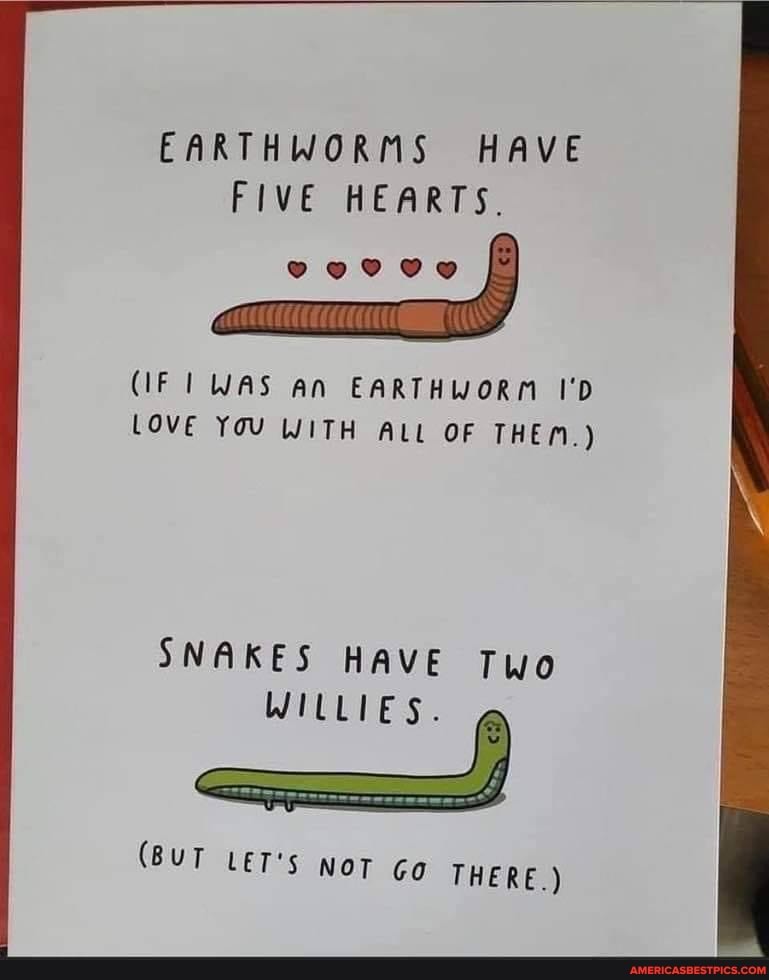 EARTHWORMS HAVE
FIVE HEARTS.
(IF I WAS AN EARTHWORM I'D
LOVE YOU WITH ALL OF THEM.)
SNAKES HAVE TWO
WILLIES.
(BUT LET'S NOT GO THERE.)
AMERICASBESTPICS.COM